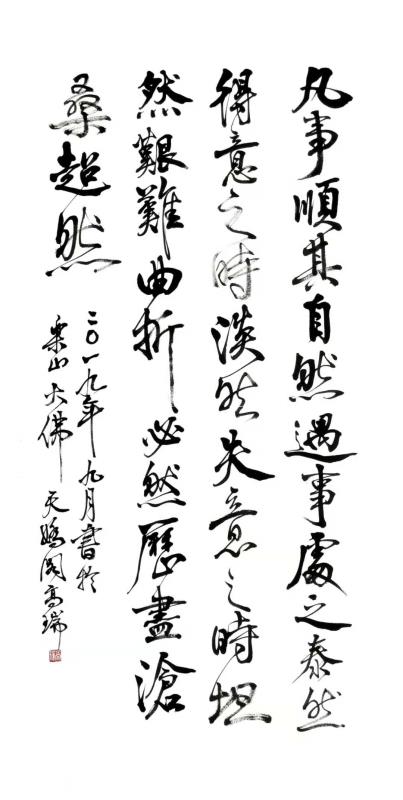 凡事順其自然遇事處之泰然
得意之時淡然失意之時坦
然艱難曲折必然歷盡滄
桑超然
二〇一九年九月書於
樂山大佛天閣高瑞